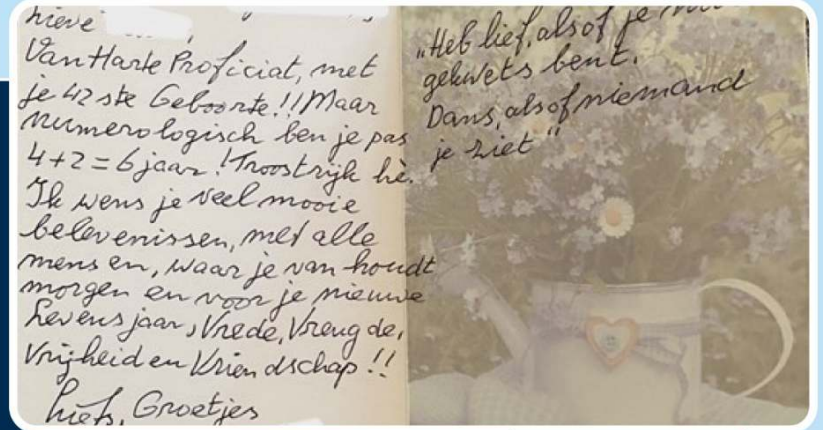 Lieve
Van Harte Proficiat, met
je 42 ste Geboorte!! Maar
numerologisch ben je pas
4+2=6 jaar! Troostrijk hè.
Ik wens je veel mooie
belevenissen, met alle
mensen, waar je van houdt
morgen en voor je nieuwe
Levensjaar, Vrede, Vreugde,
Vrijheid en Vriendschap!!
Liefs, Groetjes
"Heb lief, alsof je
gekwets bent.
Dans, alsof niemand
je ziet"